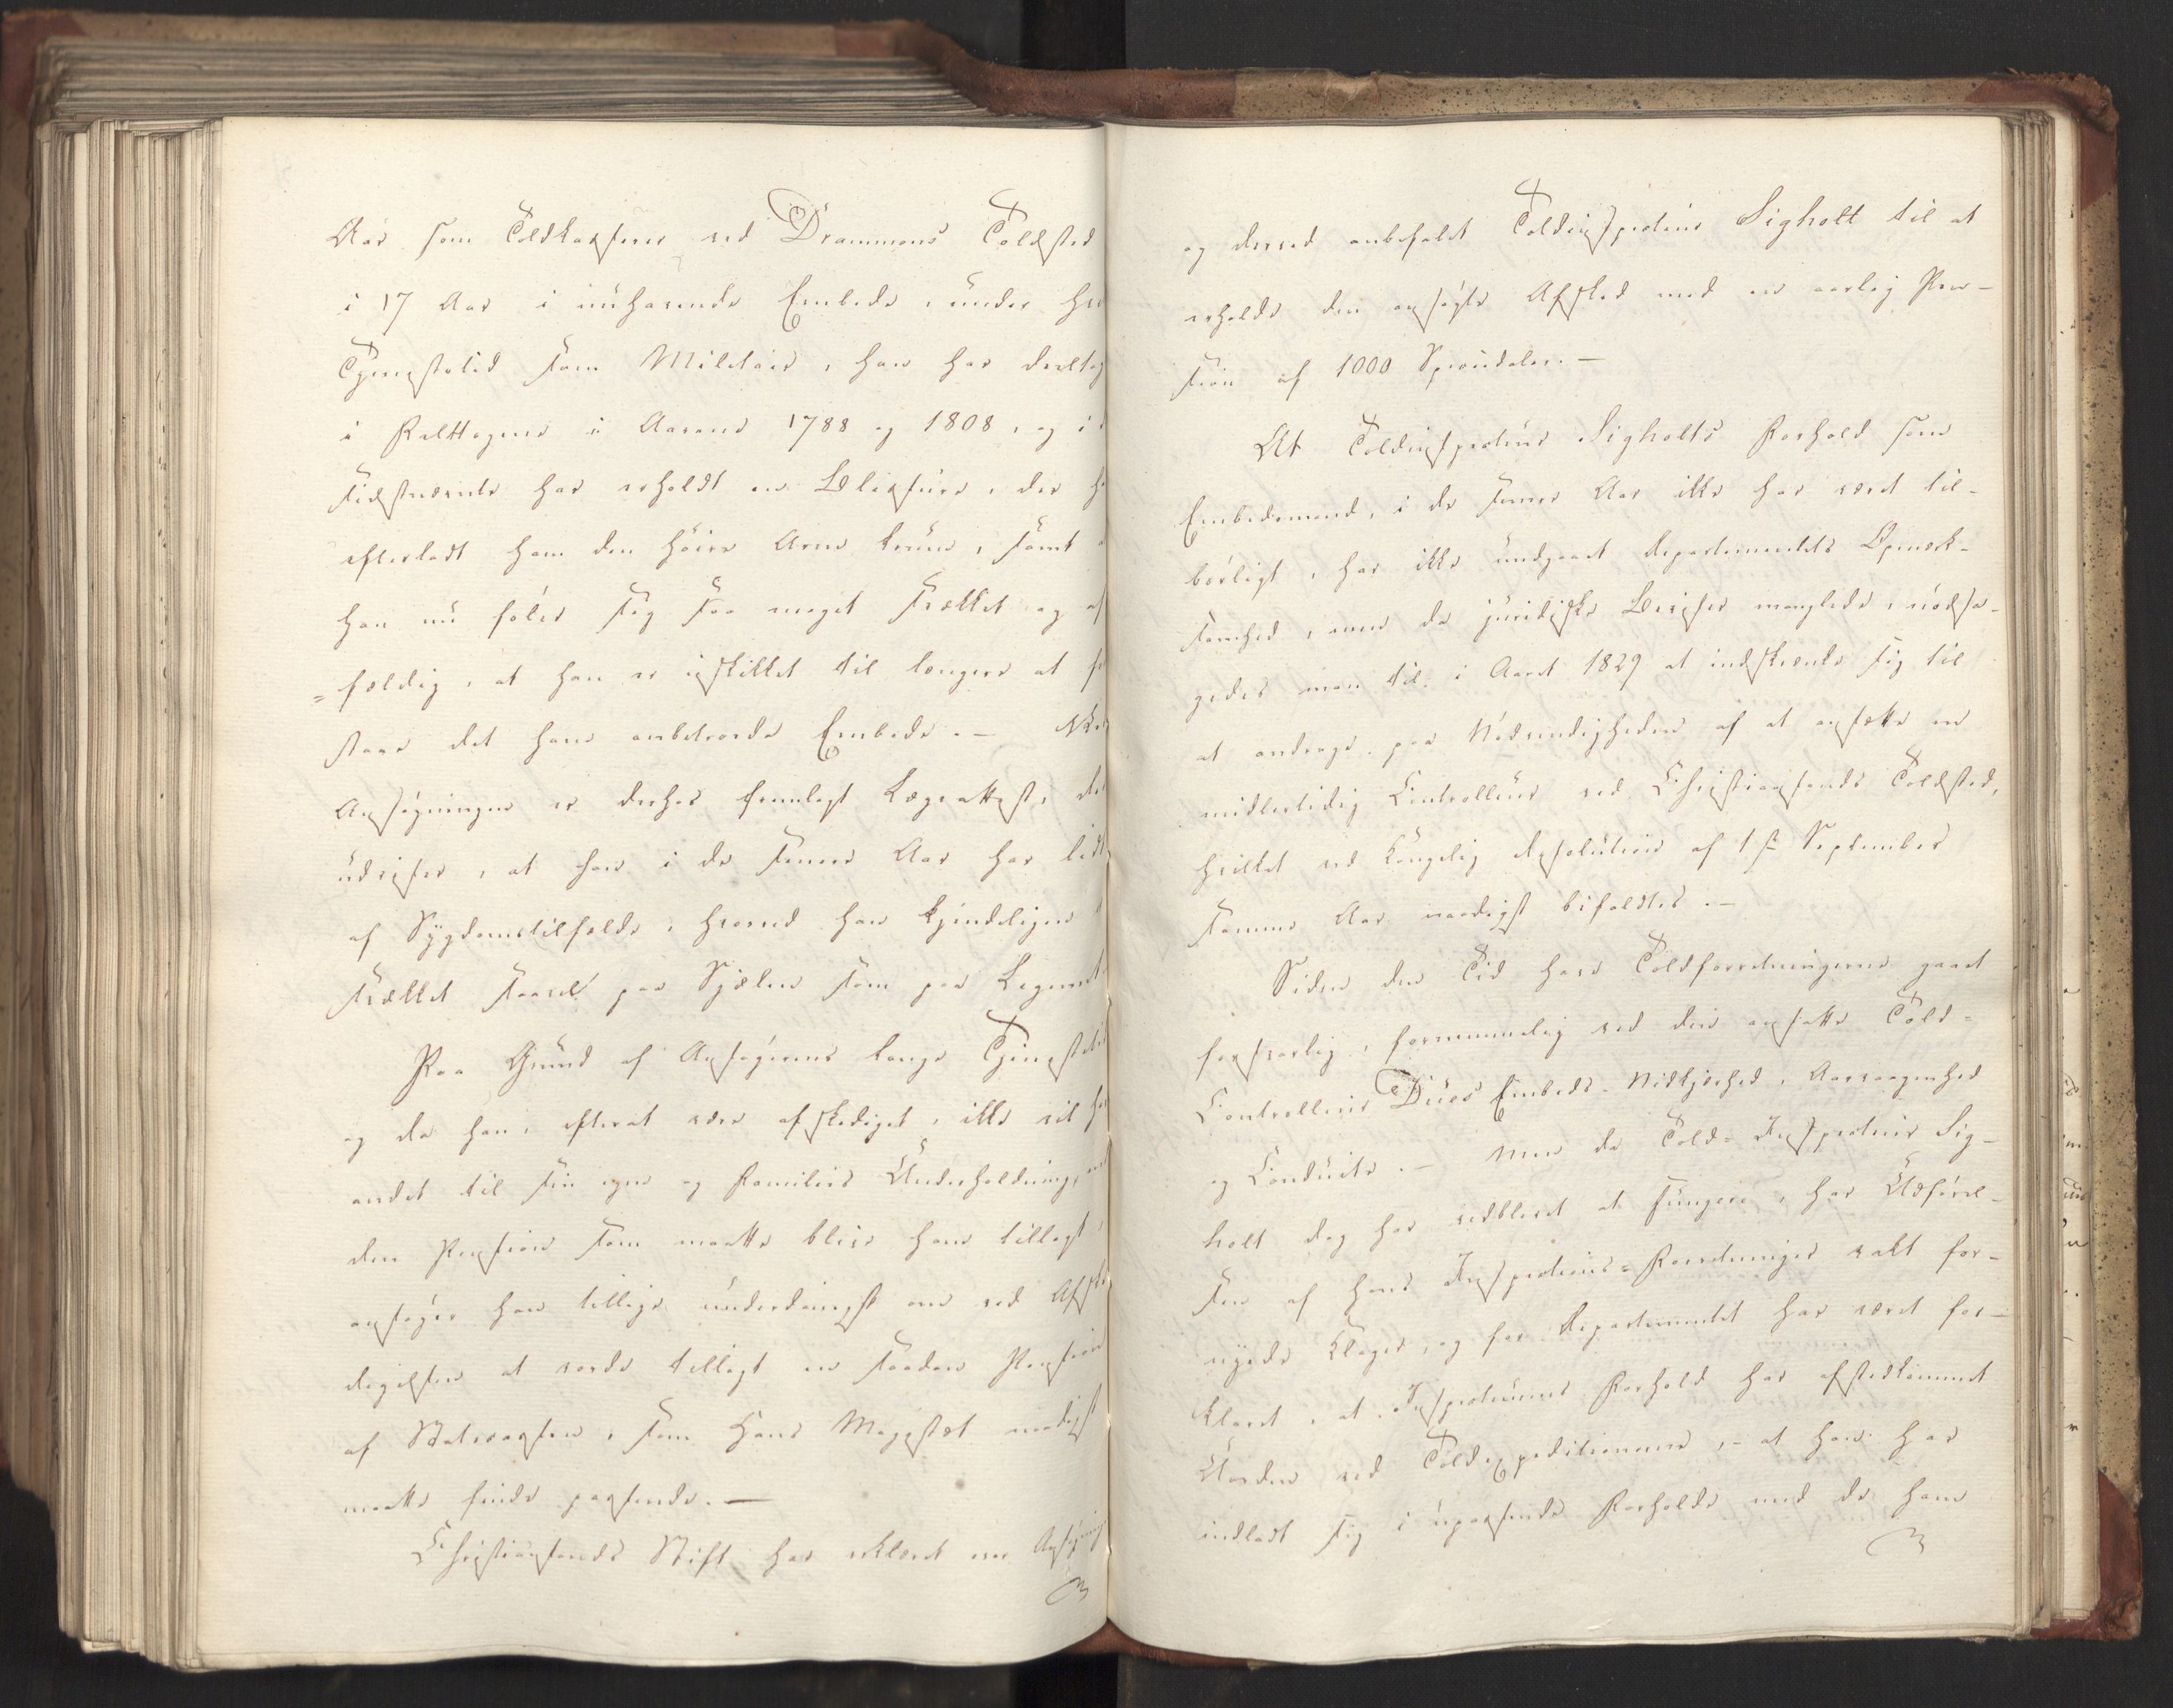 Aar som Toldkasserer ved Drammens Toldsted
i 17 Aar i nuhavende Embede, under
Tjenestetid som Militair, han har deeltag
i Felttogene i Aarene 1788 og 1808, og i
sidstnævnte har erholdt en Blessure, der
efterladt ham den höire Arm krum, samt
han nu föler sig saa meget svækket og af
=fældig, at han er uskikket til længere at
staae det ham anbetroede Embede. —
Ansögningen er derhos fremlagt Lægeattest, der
udviser, at han i de senere Aar har lidt
af Sygdomstilfælde, hvorved han kjendeligen
svækket saavel paa Sjælen som paa Legemet
Paa Grund af Ansögerens lange Tjeneste
og da han, efterat være afskediget, ikke vil
andet til sin egen og Families Underholdning,
den Pension som maatte blive ham tillagt,
ansöger han tillige underdanigst om ved Afske
digelsen at vorde tillagt en saadan Pension
af Statscassen, som Hans Majestæt naadigst
maatte finde passende. —
Christiansands Stift har erklæret over Ansögning
og derved anbefalet Toldinspecteur Sigholt til at
erholde den ansögte Afsked med en aarlig Pen-
sion af 1000 Speciedaler. —
At Toldinspecteur Sigholts Forhold som
Embedsmand, i de senere Aar ikke har været til-
börligt, har ikke undgaaet Departementets Opmærk-
somhed, men da juridiske Beviser manglede, nödsa-
gedes man til i Aaret 1829 at indskrænke sig til
at andrage paa Nödvendigheden af at ansætte en
midlertidig Controlleur ved Christiansands Toldsted,
hvilket ved Kongelig Resolution af 1ste September
samme Aar naadigst bifaldtes. —
Siden den Tid have Toldforretningerne gaaet
forsvarlig, fornemmelig ved den ansatte Told-
Controlleur Dües Embeds-Nidkjærhed, Aarvaagenhed
og Conduite. — Men da Told-Inspecteur Sig-
holt dog har vedblevet at fungere, har Udförel-
sen af hans Inspections=Forretninger vakt for-
nyede Klager, og for Departementet har været for-
klaret, at Inspecteurens Forhold har afstedkommet
Uorden ved Toldexpeditionerne, - at han har
indladt sig i upassende Forholde med de ham